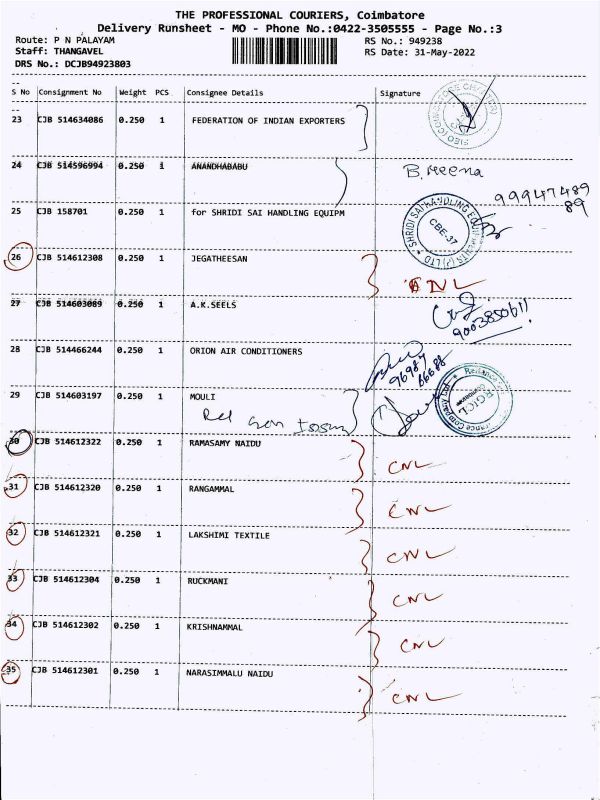 THE PROFESSIONAL COURIERS, Coimbatore
Delivery Runsheet - MO - Phone No.:0422-3505555 - Page No.:3
Route: P N PALAYAM
RS No.: 949238
Staff: THANGAVEL
RS Date: 31-May-2022
DRS No.: DCJB94923803
S No Consignment No Weight PCS Consignee Details Signature
23 CJB 514634086 0.250 1 FEDERATION OF INDIAN EXPORTERS
24 CJB 514596994 0.250 1 ANANDHABABU B. Meena
99947489
89
25 CJB 158701 0.250 1 for SHRIDI SAI HANDLING EQUIPM
SHRIDI SAI HANDLING EQUIPMENTS (P) LTD
CBE-37
26 CJB 514612308 0.250 1 JEGATHEESAN DNL
27 CJB 514603089 0.250 1 A.K.SEELS
9003850611
28 CJB 514466244 0.250 1 ORION AIR CONDITIONERS
96987
66688
29 CJB 514603197 0.250 1 MOULI
Rel Gen
RGICL
30 CJB 514612322 0.250 1 RAMASAMY NAIDU CNL
31 CJB 514612320 0.250 1 RANGAMMAL CNL
32 CJB 514612321 0.250 1 LAKSHIMI TEXTILE CNL
33 CJB 514612304 0.250 1 RUCKMANI CNL
34 CJB 514612302 0.250 1 KRISHNAMMAL CNL
35 CJB 514612301 0.250 1 NARASIMMALU NAIDU CNL